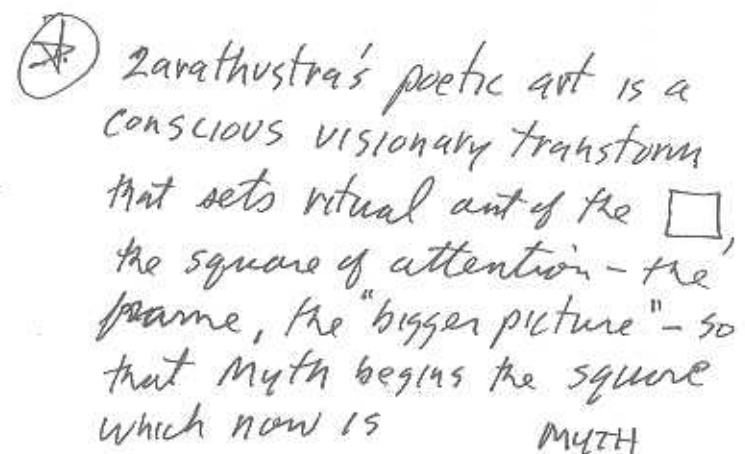 Zarathustra's poetic art is a
conscious visionary transform
that sets ritual out of the □,
the square of attention - the
frame, the "bigger picture" - so
that Myth begins the square
which now is MYTH